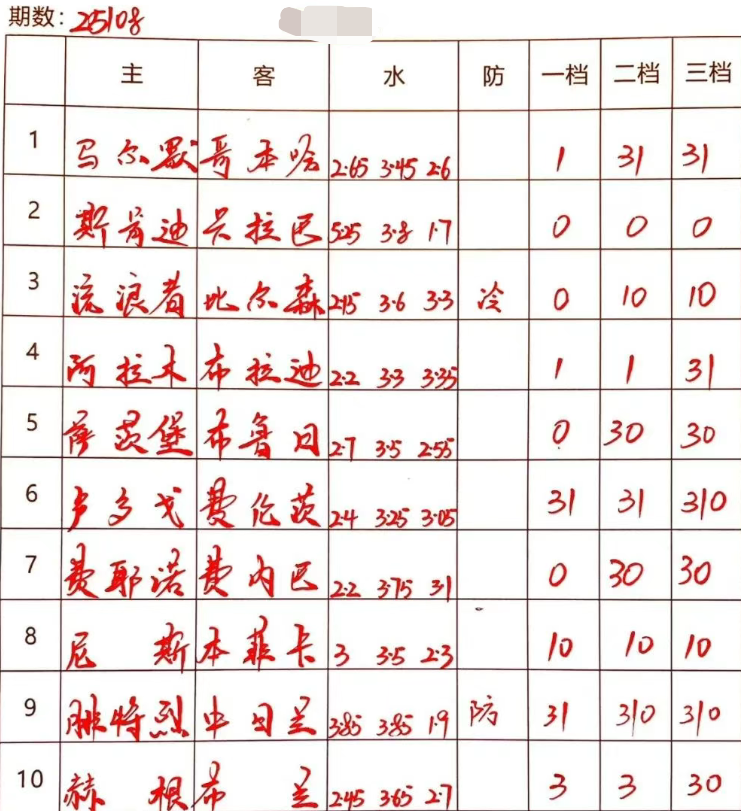 期数: 25108
主 客 水 防 一档 二档 三档
1 马尔默 哥本哈 2.65 3.45 2.6 1 31 31
2 斯肯迪 卡拉巴 5.25 3.8 1.7 0 0 0
3 流浪者 比尔森 2.15 3.6 3.3 冷 0 10 10
4 阿拉木 布拉迪 2.2 3.3 3.35 1 1 31
5 萨茨堡 布鲁日 2.7 3.5 2.55 0 30 30
6 卢多戈 费伦茨 2.4 3.25 3.05 31 31 310
7 费耶诺 费内巴 2.2 3.75 3.1 0 30 30
8 尼斯 本菲卡 3 3.5 2.3 10 10 10
9 腓特烈 中日兰 3.85 3.85 1.9 防 31 310 310
10 赫根 布兰 2.45 3.65 2.7 3 3 30